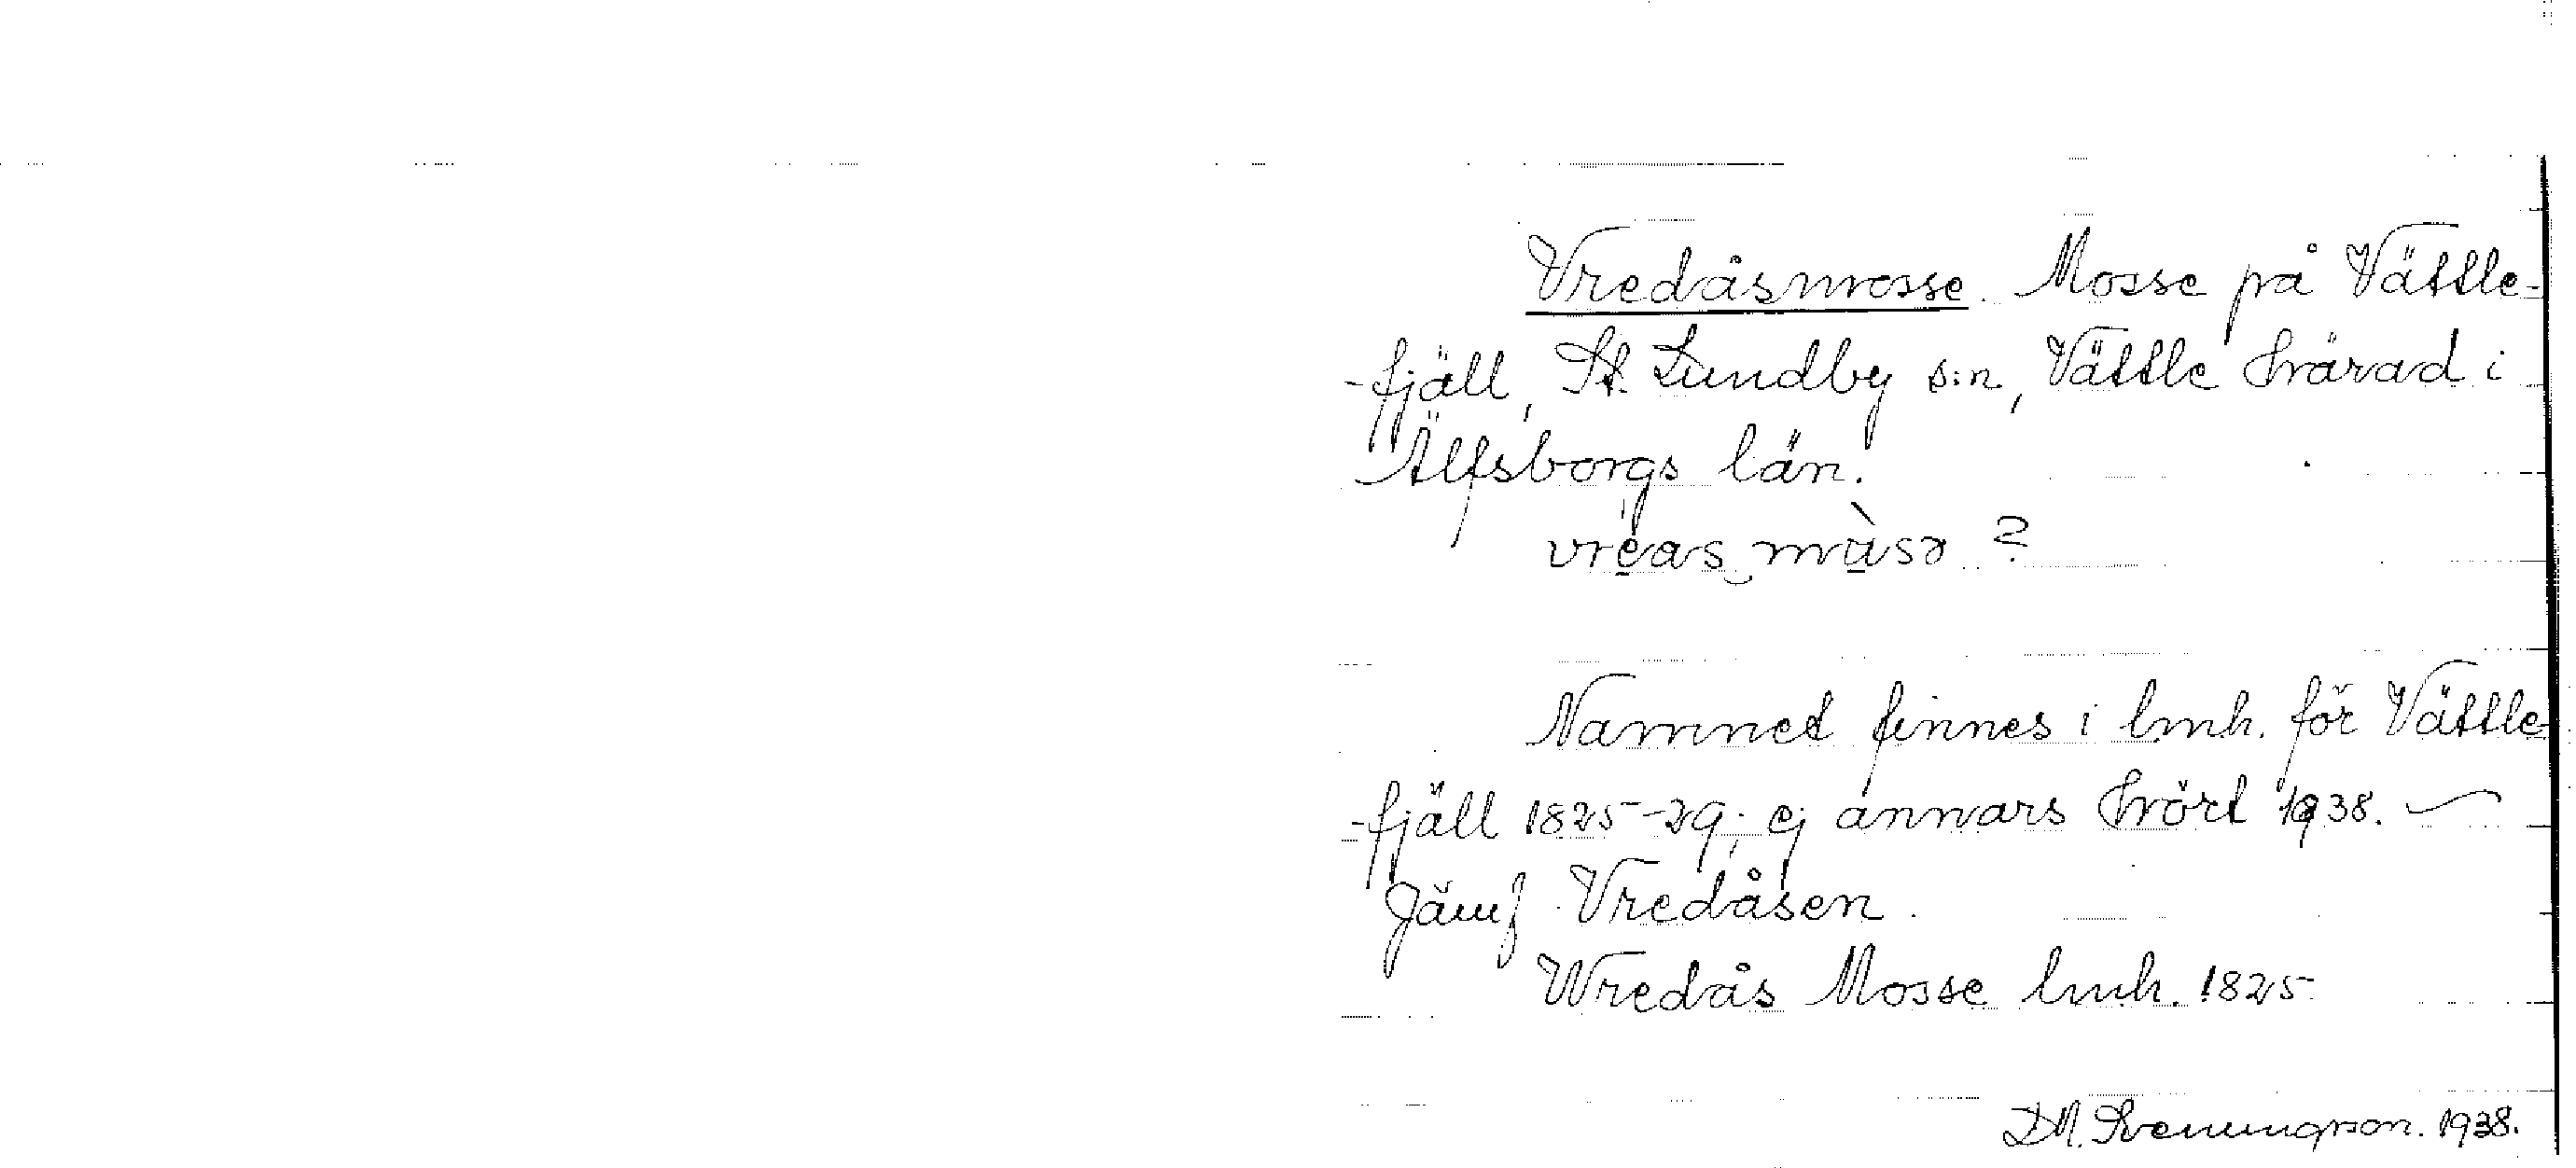 Vredåsmosse. Mosse på Vättle-
-fjäll, St. Lundby s:n, Vättle härad i
Älfsborgs län.
vreas måsə ?
Namnet finnes i lmh. för Vättle
-fjäll 1825-29; ej annars hört 1938. —
Jämf Vredåsen.
Wredås Mosse lmh. 1825
D.N. Svenungsson. 1938.